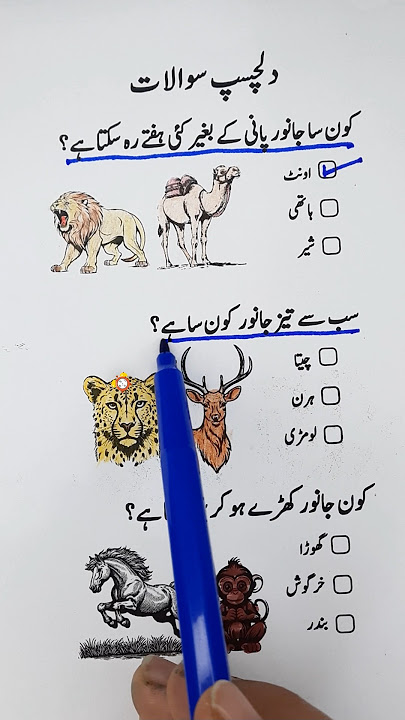 دلچسپ سوالات
کون سا جانور پانی کے بغیر کئی ہفتے رہ سکتا ہے؟
اونٹ
ہاتھی
شیر
سب سے تیز جانور کون سا ہے؟
چیتا
ہرن
لومڑی
کون جانور کھڑے ہو کر ہے؟
گھوڑا
خرگوش
بندر